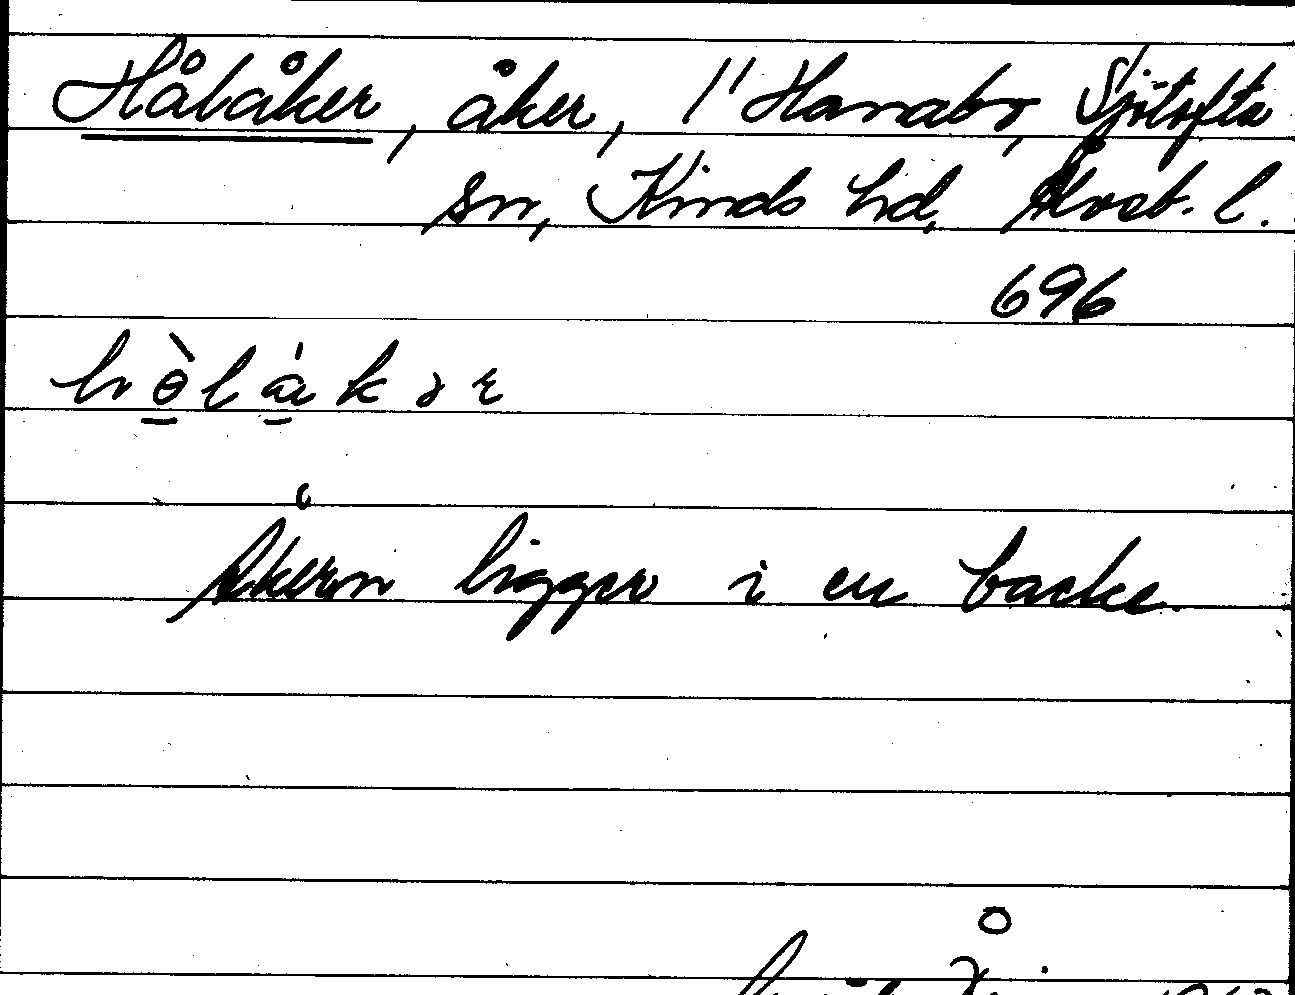 Hålåker, åker, 1/1 Hanabo, Sjötofta
sn, Kinds hd, Älvsb. l.
696
hòlàkər
Åkern ligger i en backe.